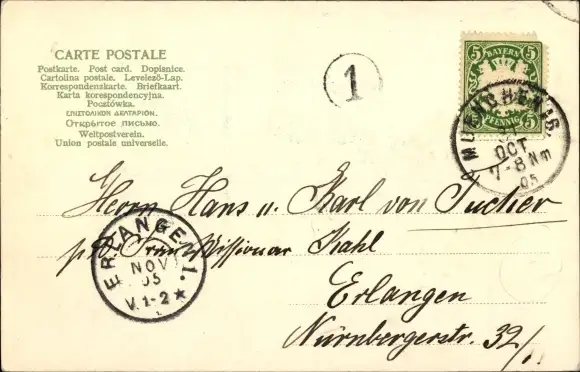 CARTE POSTALE
Postkarte. Post card. Dopisnice.
Cartolina postale. Levelező-Lap.
Korrespondenzkarte. Briefkaart.
Karta korespondencyjna.
Pocztówka.
ΕΠΙΣΤΟΛΙΚΟΝ ΔΕΛΤΑΡΙΟΝ.
Открытое письмо.
Weltpostverein.
Union postale universelle.
1
5 BAYERN 5
5 PFENNIG 5
MUENCHEN
OCT
7-8 Nm
05
Herrn Hans u. Karl von Tucher
Frau Missionar Kahl
Erlangen
Nürnbergerstr. 32/I
ERLANGEN 1.
NOV
05
V. 1-2 ★